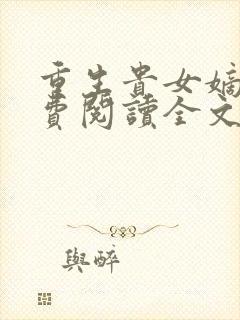 重生貴女嫡
費閱讀全文
與醉